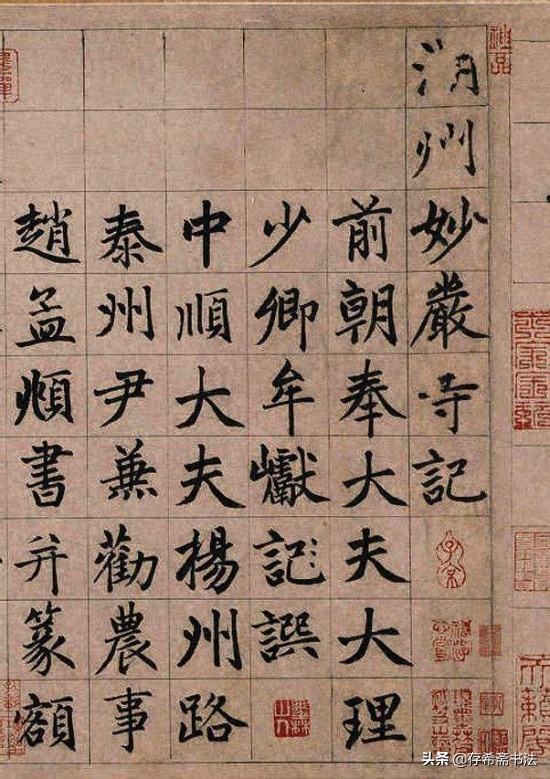 湖州妙嚴寺記
前朝奉大夫大理
少卿牟巘記譔
中順大夫楊州路
泰州尹兼勸農事
趙孟頫書并篆額
头条 @存希斋书法